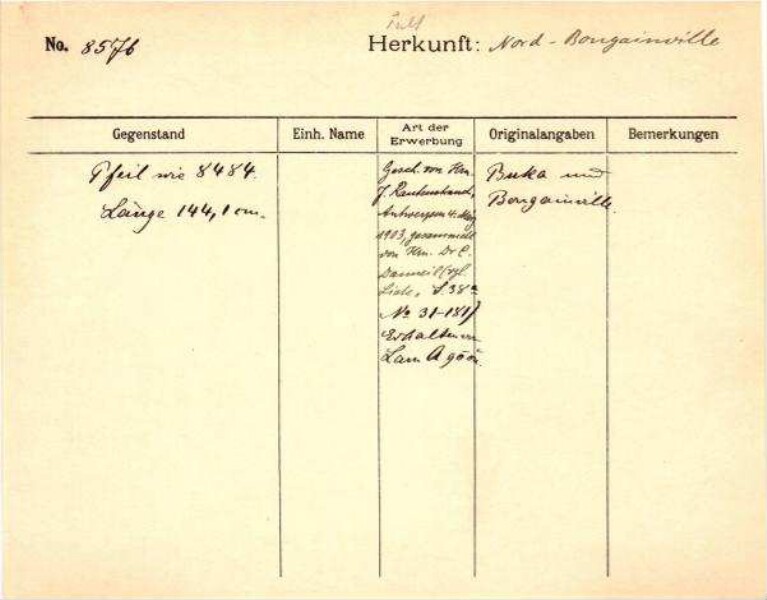 No. 8576
Herkunft: Nord-Bougainville
Gegenstand
Einh. Name
Art der
Erwerbung
Originalangaben
Bemerkungen
Pfeil wie 8484.
Länge 144,1 cm.
Gesch. von Hrn.
J. Rautenstrauch,
Antwerpen 4. März
1903, gesammelt
von Hrn. Dr C.
Danneil (vgl.
Liste, S. 38a
No 31-181)
Erhalten von
Lam
Buka und
Bougainville.